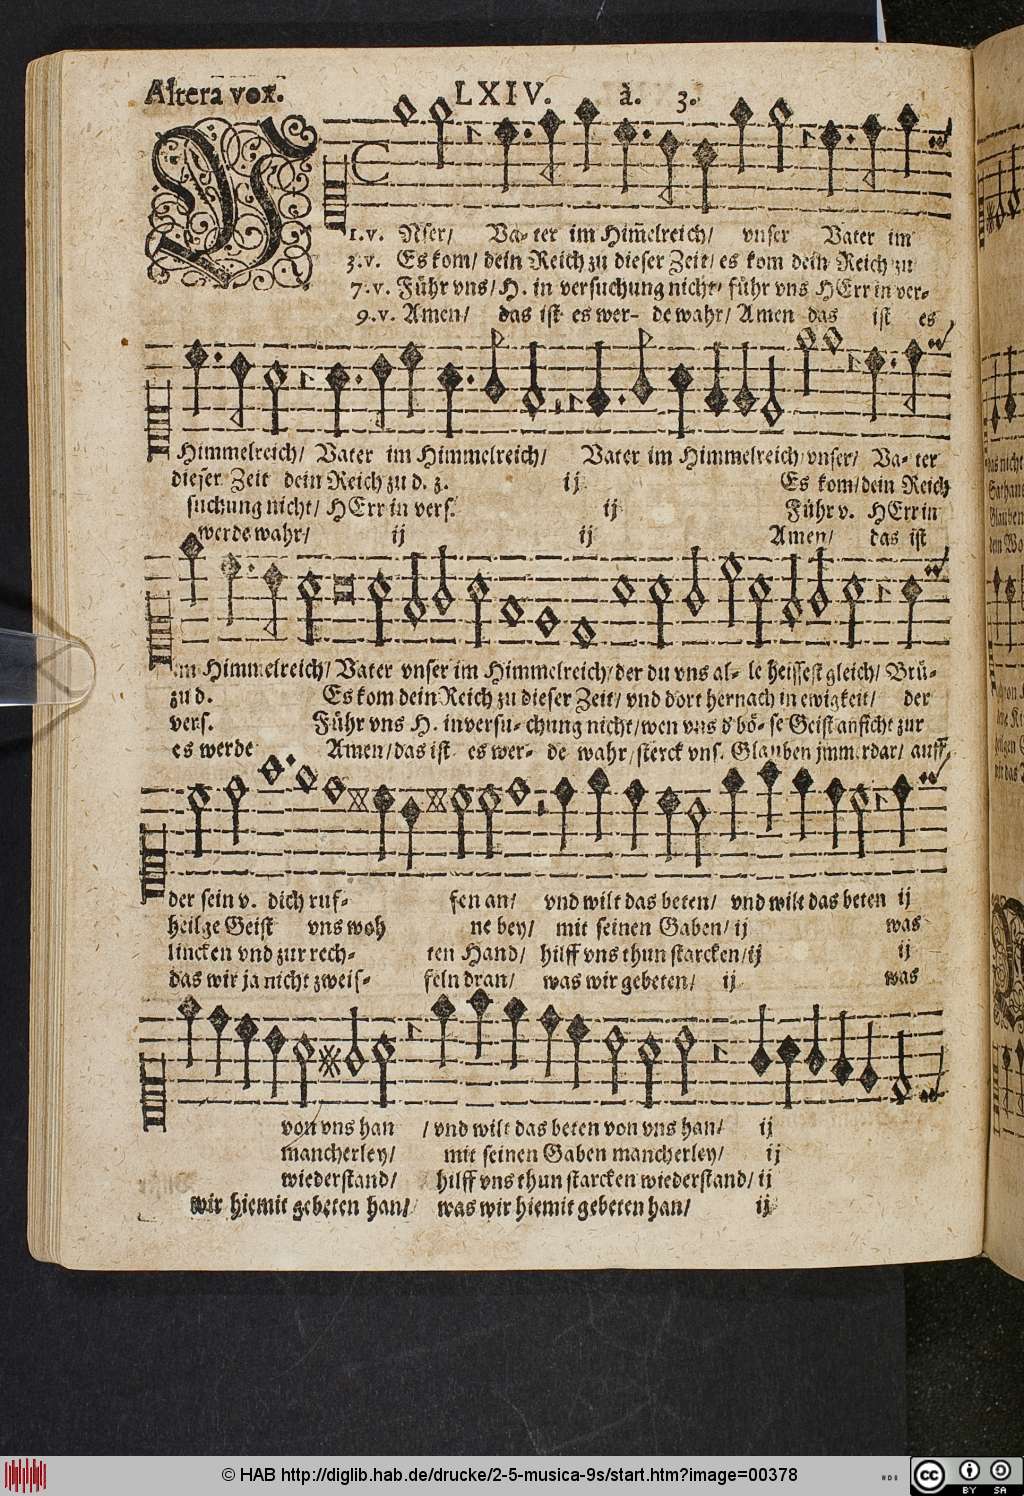 Altera vox. LXIV. à. 3.
V
1.v. Nser/ Va- ter im Him̃elreich/ vnser Vater im
3.v. Es kom/ dein Reich zu dieser Zeit/ es kom dein Reich zu
7.v. Führ vns/ H. in versuchung nicht/ führ vns HErr in ver-
9.v. Amen/ das ist es wer- de wahr/ Amen das ist es
Himmelreich/ Vater im Himmelreich/ Vater im Himmelreich/ vnser/ Va- ter
dieser Zeit dein Reich zu d. z. ij Es kom/ dein Reich
suchung nicht/ HErr in vers. ij Führ v. HErr in
werde wahr/ ij ij Amen/ das ist
im Himmelreich/ Vater vnser im Himmelreich/ der du vns al- le heissest gleich/ Brü-
zu d. Es kom dein Reich zu dieser Zeit/ vnd dort hernach in ewigkeit/ der
vers. Führ vns H. in versu- chung nicht/ wen vns d' bö- se Geist anficht zur
es werde Amen/ das ist es wer- de wahr/ sterck vns. Glauben jmmerdar/ auff
der sein v. dich ruf- fen an/ vnd wilt das beten/ vnd wilt das beten ij
heilge Geist vns woh ne bey/ mit seinen Gaben/ ij was
lincken vnd zur rech- ten Hand/ hilff vns thun starcken/ ij ij
das wir ja nicht zweif- feln dran/ was wir gebeten/ ij was
von vns han / vnd wilt das beten von vns han/ ij
mancherley/ mit seinen Gaben mancherley/ ij
wiederstand/ hilff vns thun starcken wiederstand/ ij
wir hiemit gebeten han/ was wir hiemit gebeten han/ ij
© HAB http://diglib.hab.de/drucke/2-5-musica-9s/start.htm?image=00378
cc BY SA